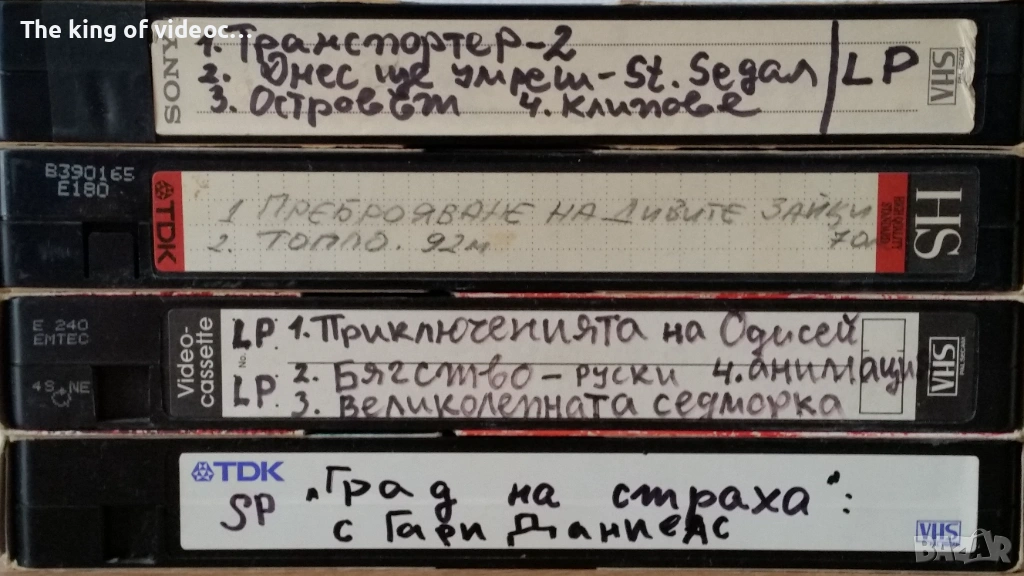 The king of videoc...
SONY
1. Транспортер-2
2. Днес ще умреш - St. Seдал
3. Островът 4. Клипове
LP
VHS
B390165
E180
TDK
1 ПРЕБРОЯВАНЕ НА ДИВИТЕ ЗАЙЦИ
2. ТОПЛО. 92м 70м
HS
E 240
EMTEC
4S NE
Video-
cassette
LP. 1. Приключенията на Одисей
No.
2. Бягство - руски 4. анимаци
LP. 3. Великолепната седморка
VHS
TDK
SP
„Град на страха":
с Гари Даниелс
VHS
BAZAR